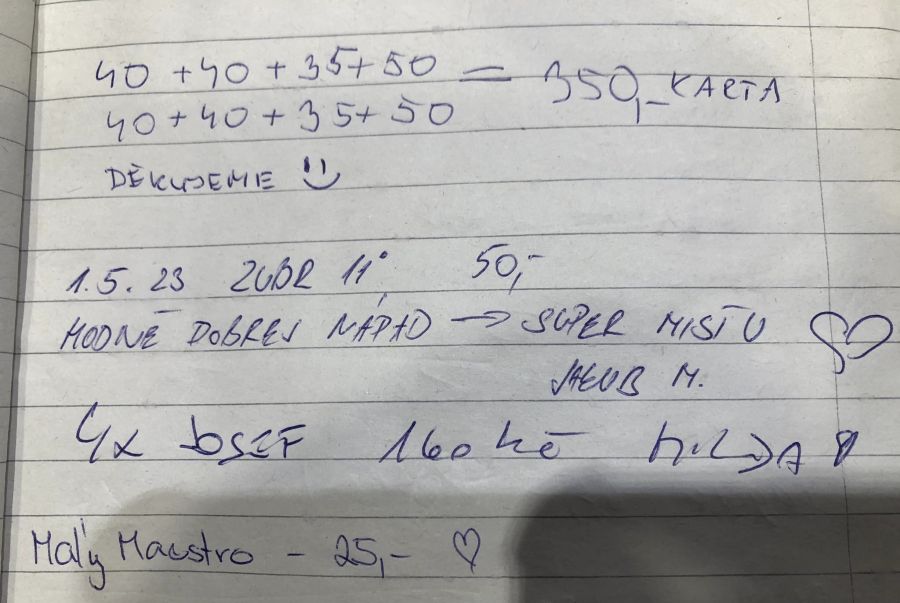 40 + 40 + 35 + 50 = 350,- KARTA
40 + 40 + 35 + 50
DĚKUJEME
1.5.23 ZUBR 11° 50,-
HODNĚ DOBREJ NÁPAD → SUPER MÍSTO
JAKUB M.
4x JOSEF 160 Kč
Malý Maestro - 25,- ♡